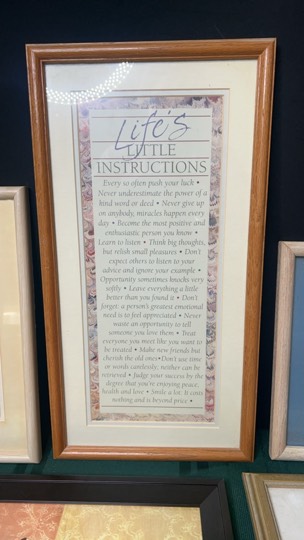 Life's
LITTLE
INSTRUCTIONS
Every so often push your luck •
Never underestimate the power of a
kind word or deed • Never give up
on anybody, miracles happen every
day • Become the most positive and
enthusiastic person you know •
Learn to listen • Think big thoughts,
but relish small pleasures • Don't
expect others to listen to your
advice and ignore your example •
Opportunity sometimes knocks very
softly • Leave everything a little
better than you found it • Don't
forget: a person's greatest emotional
need is to feel appreciated • Never
waste an opportunity to tell
someone you love them • Treat
everyone you meet like you want to
be treated • Make new friends but
cherish the old ones•Don't use time
or words carelessly; neither can be
retrieved • Judge your success by the
degree that you're enjoying peace,
health and love • Smile a lot. It costs
nothing and is beyond price •